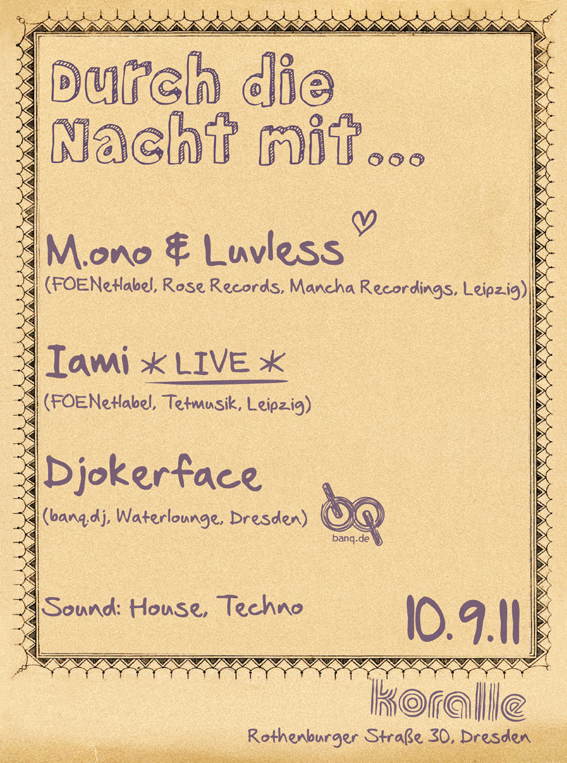 Durch die
Nacht mit...
M.ono & Luvless
(FOENetlabel, Rose Records, Mancha Recordings, Leipzig)
Iami * LIVE *
(FOENetlabel, Tetmusik, Leipzig)
Djokerface
(banq.dj, Waterlounge, Dresden)
bq
banq.de
Sound: House, Techno
10.9.11
koralle
Rothenburger Straße 30, Dresden